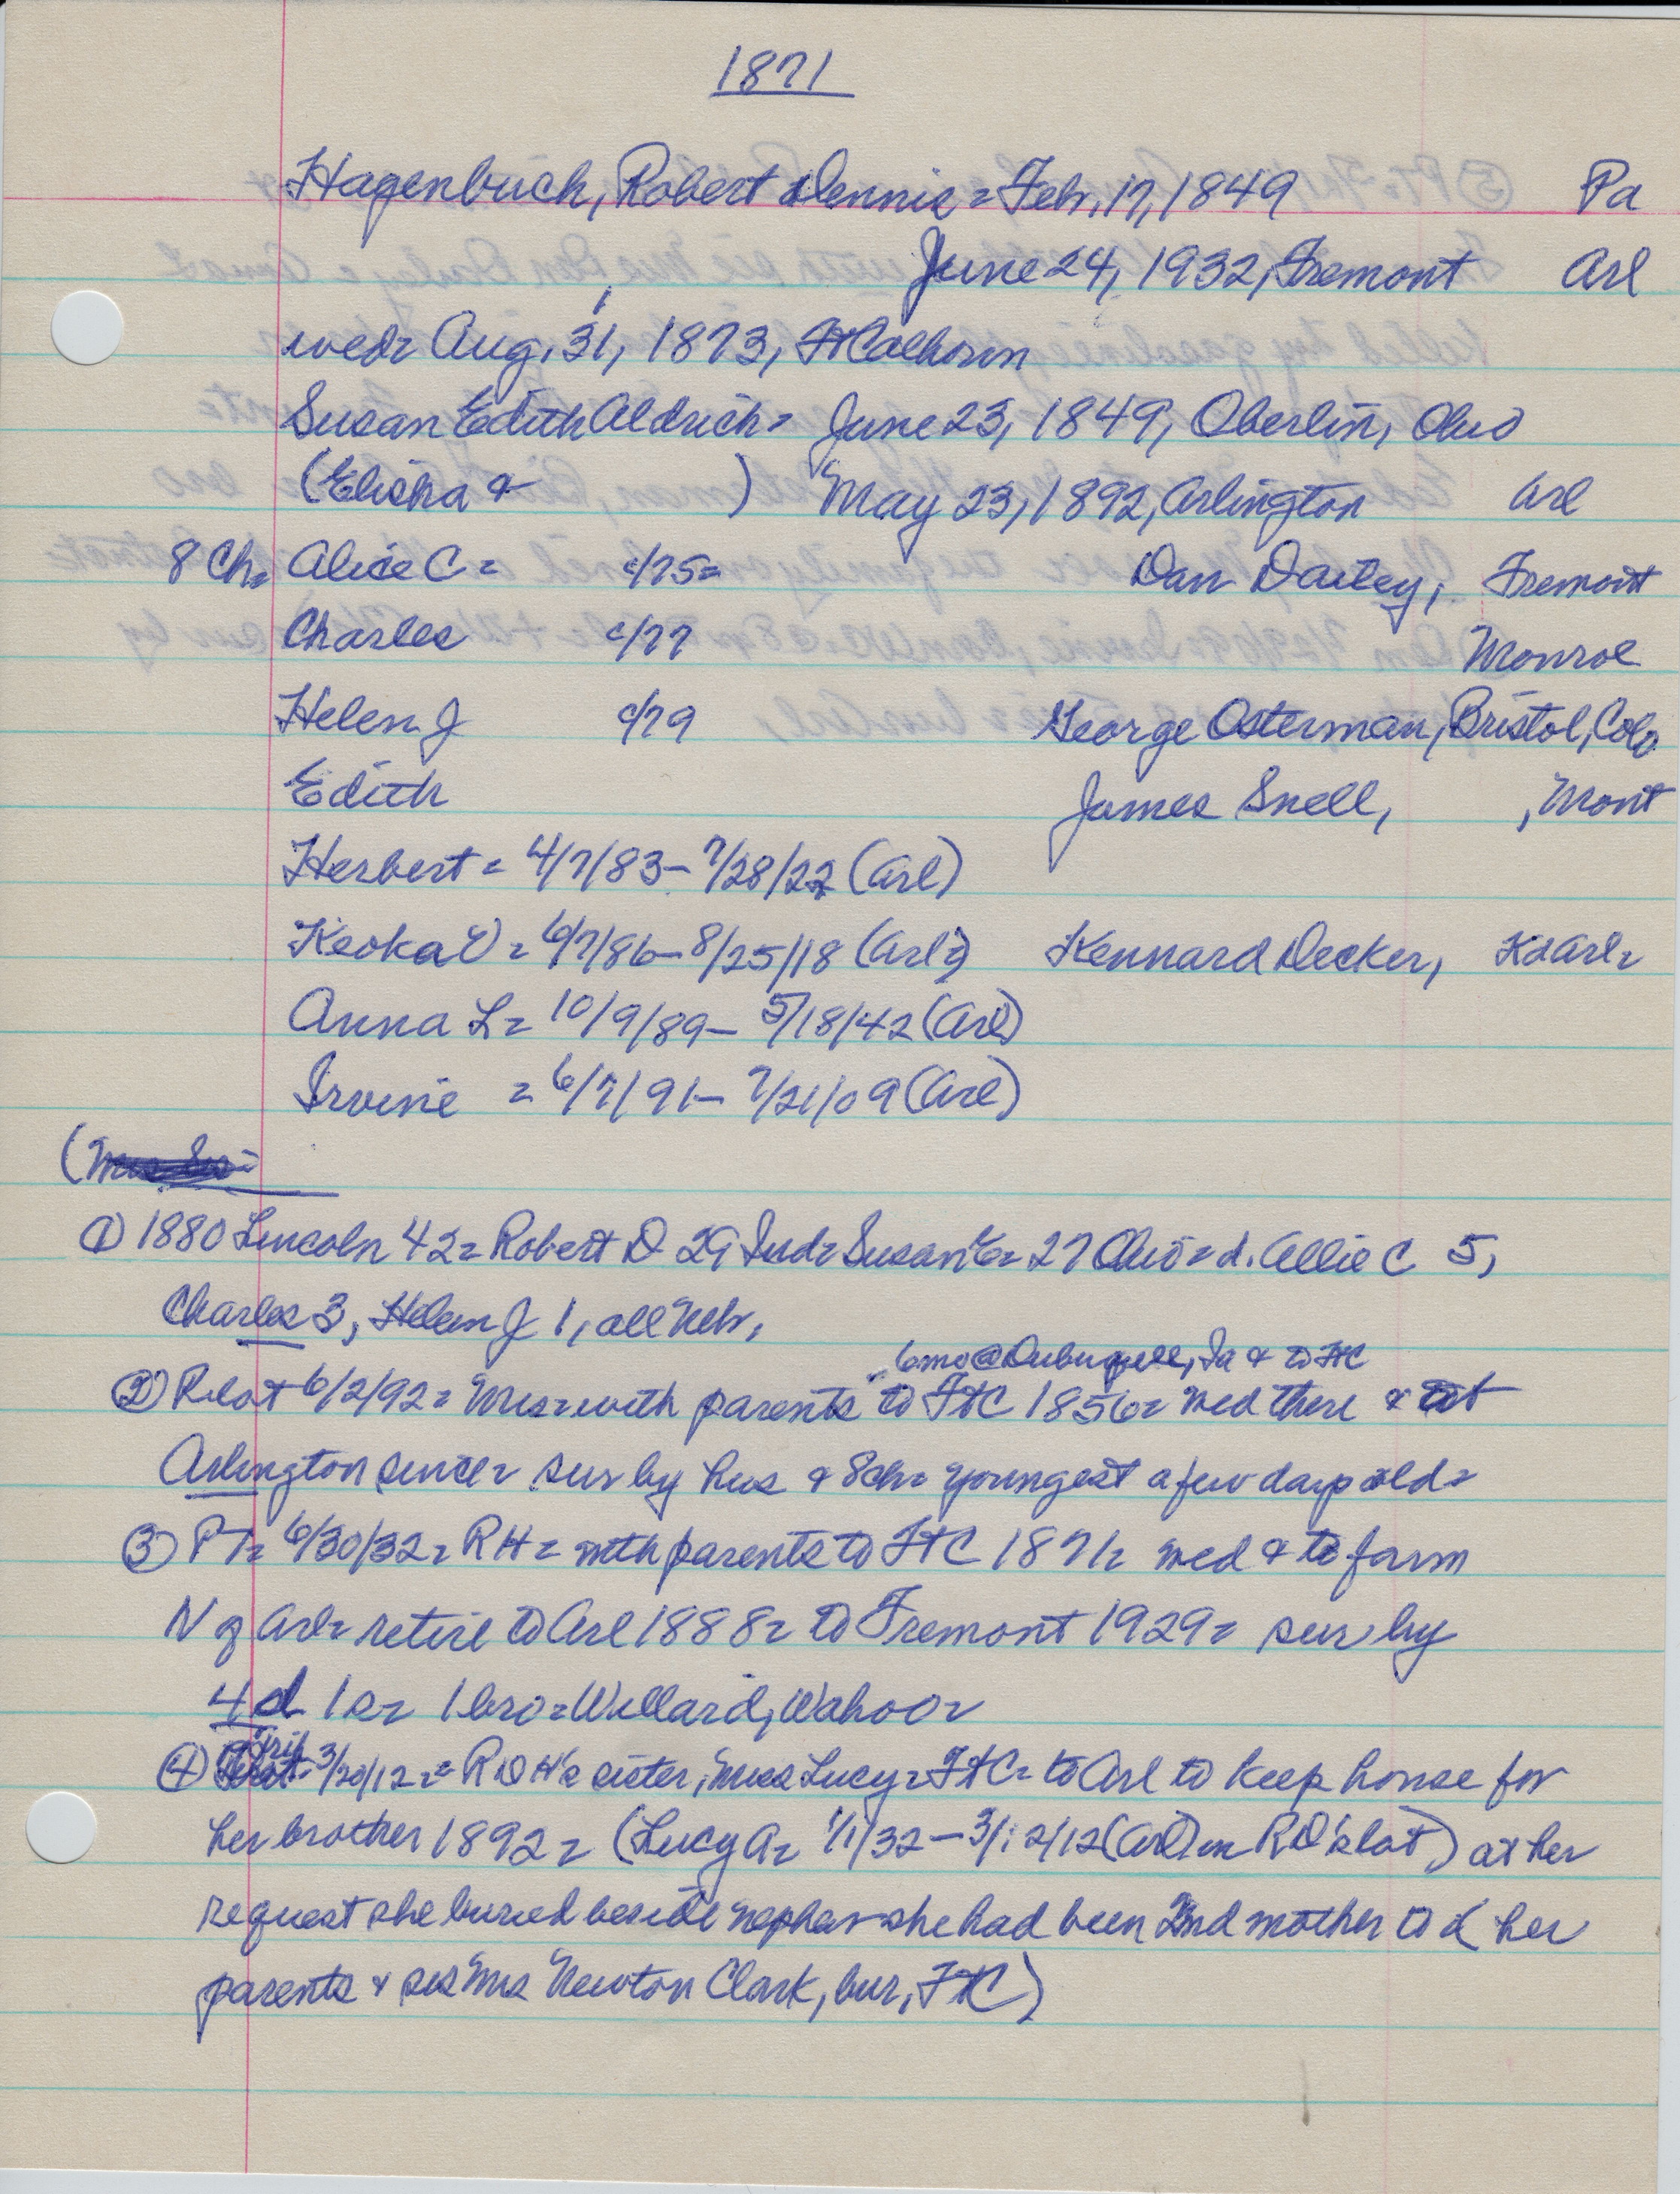 1871
Hagenbuch, Robert Dennis = Febr. 17, 1849 Pa
June 24, 1932, Fremont Arl
wed= Aug. 31, 1873, FtCalhoun
Susan Edith Aldrich= June 23, 1849, Oberlin, Ohio
(Elisha & ) May 23, 1892, Arlington Arl
8 Ch= Alice C = c/75= Dan Dailey, Fremont
Charles c/77 Monroe
Helen J c/79 George Osterman, Bristol, Colo
Edith James Snell, , Mont
Herbert = 4/7/83– 7/28/22 (Arl)
Keoka V = 6/7/86– 8/25/18 (Arl=) Kennard Decker, Arl=
Anna L = 10/9/89– 5/18/42 (Arl)
Irvine = 6/7/91– 7/21/09 (Arl)
(
① 1880 Lincoln 42= Robert D 29 Ind= Susan E= 27 Ohio= d. Allie C 5,
Charles 3, Helen J 1, all Nebr,
6mo @ Dubuquee, Ia & to FtC
② Pilot 6/2/92= Mrs= with parents to FtC 1856= wed there & at
Arlington since= sur by hus & 8ch= youngest a few days old=
③ PT= 6/30/32= RH= with parents to FtC 1871= wed & to farm
N of Arl= retire to Arl 1888= to Fremont 1929= sur by
4 d 1s= 1 bro= Willard, Wahoo=
④ Trib 3/20/12== RDH's sister, Miss Lucy= FtC= to Arl to keep house for
her brother 1892= (Lucy A= 1/1/32–3/12/12 (Arl) on RD's lot) at her
request she buried beside nephew she had been 2nd mother to (her
parents & sis Mrs Newton Clark, bur, FtC)